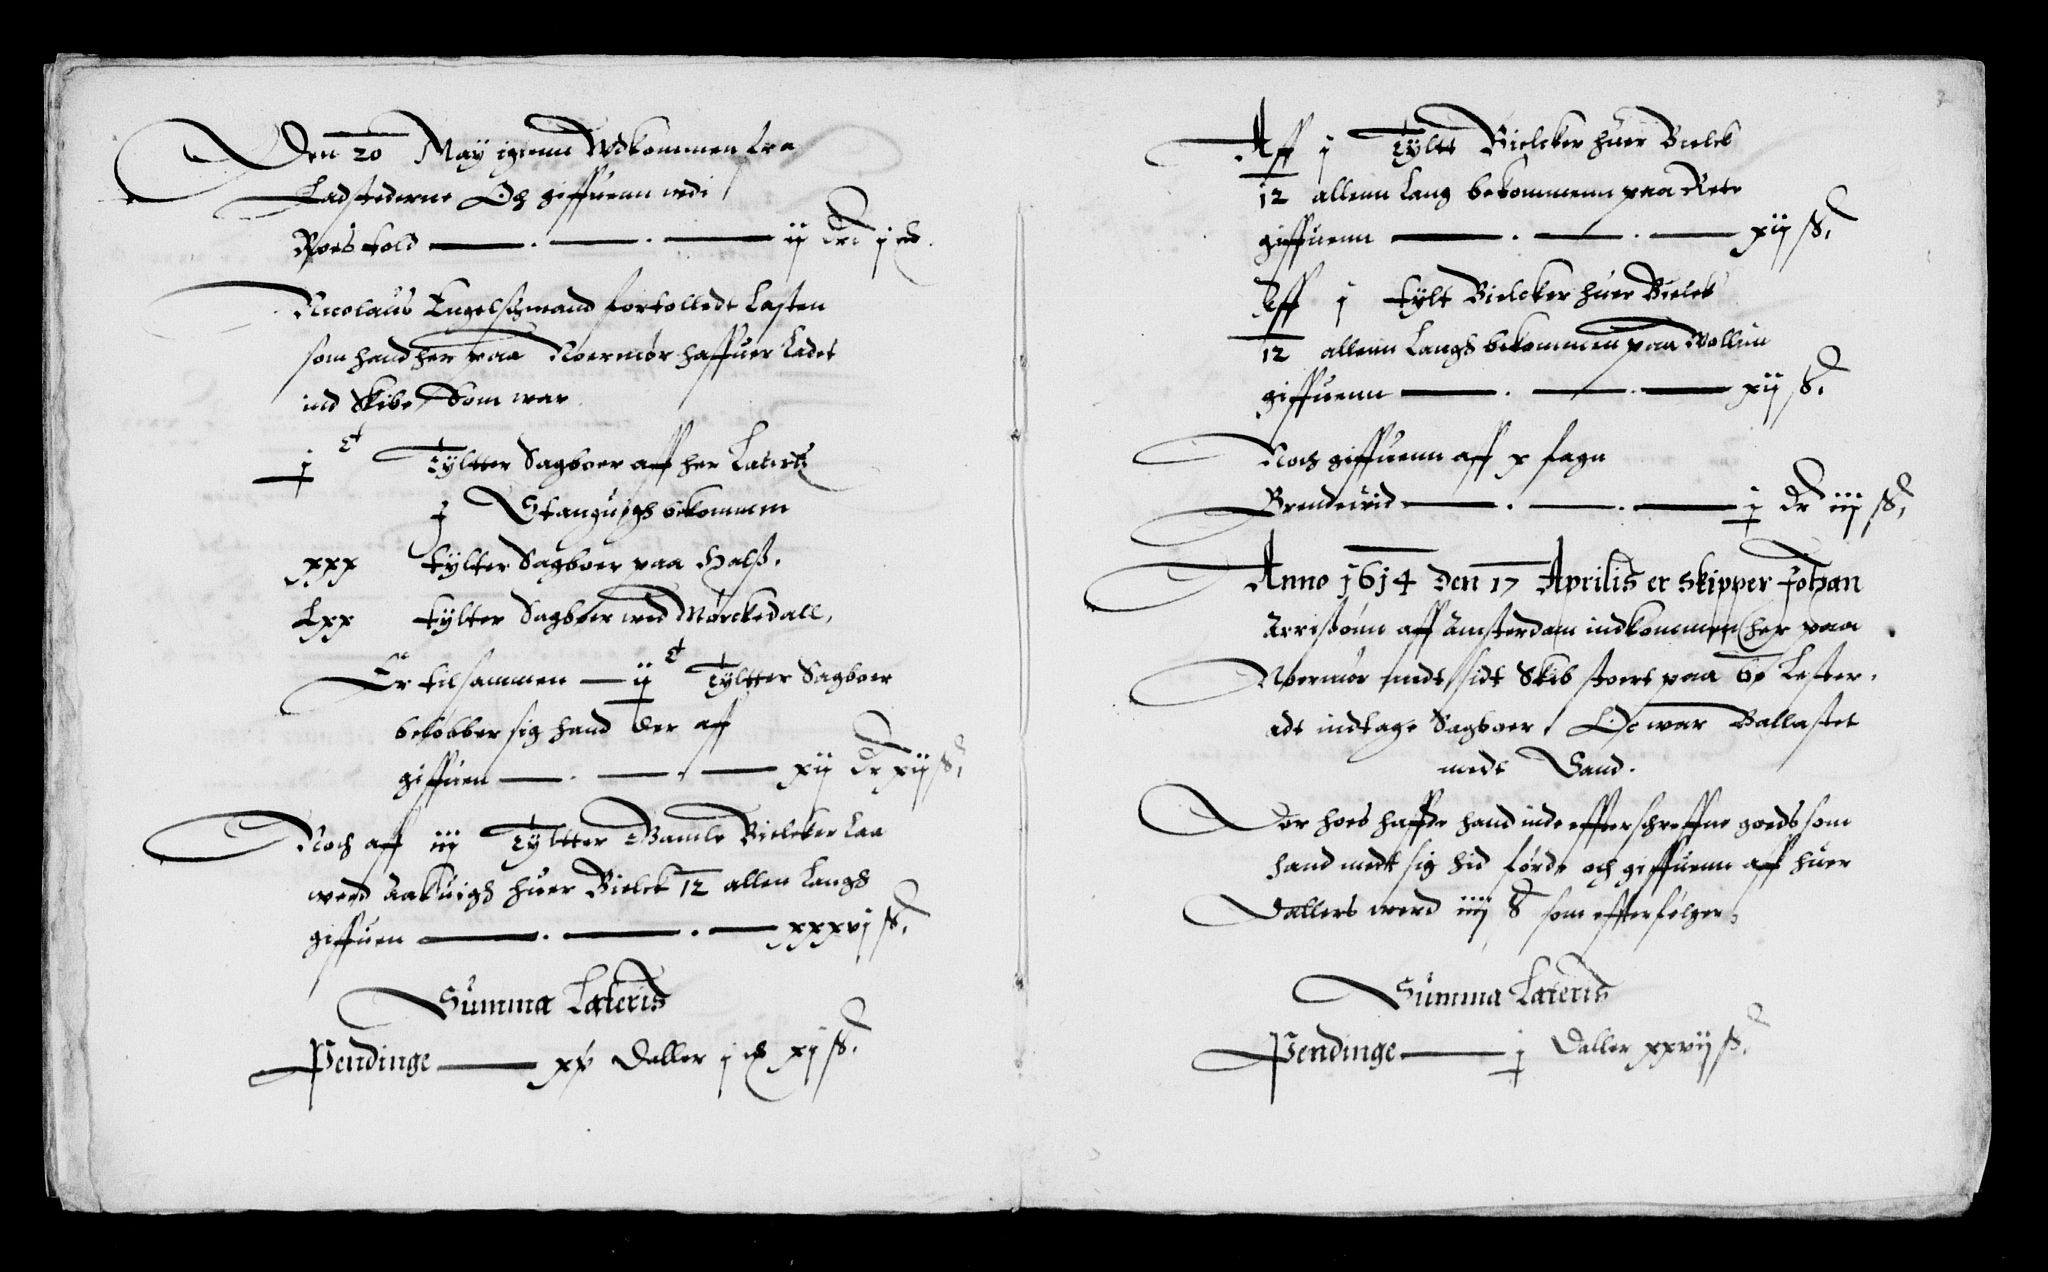 Den 20 May igienn Wdkommen fra
Ladstederne Och giffuenn udi
Roers told ij Dlr j ort.
Nicolaus Engelschmand fortollede Lasten
som hand her paa Noermør haffuer Ladet
ind Skibe, Som war
j c Tyltter Sagboer aff her Laurits
J Stanguighs bekommen
xxx tylter Sagboer paa Halss.
Lxx tylter Sagboer wed Mørckedall,
Er tilsammen ij c Tyltter Sagboer
beløbber sig hand der aff
giffuen xij Dr xij ß,
Noch aff iij Tyltter Gamle Bielcker Laa
werd Aakuigs huer Bielck 12 allen Langs
giffuen xxxvj ß,
Summa Lateris
Pendinge xv Daller j ort xj ß,
Aff j Tyltt Bielcker huer Bielck
12 allenn Lang bekommenn paa Rete
giffuenn xij ß,
Aff j tylt Bielcker huer Bielck
12 allenn Langs bekommen paa Wollun
giffuenn xij ß,
Noch giffuenn aff x fagn
Brendeuid j Dr iij ß,
Anno 1614 Den 17 Aprilis er skipper Johan
Arrissønn aff Amsterdam indkommen her paa
Noermør medt sidt Skib stoert paa 60 Lester.
adt indtage Sagboer, Oc war Ballastet
medt Sand.
Der hoes haffde hand inde effterschreffne goeds som
hand medt sig hid førde och giffuenn aff huer
Dallers werd iiij ß som effterfølger,
Summa Lateris
Pendinge j Daller xxvij ß,